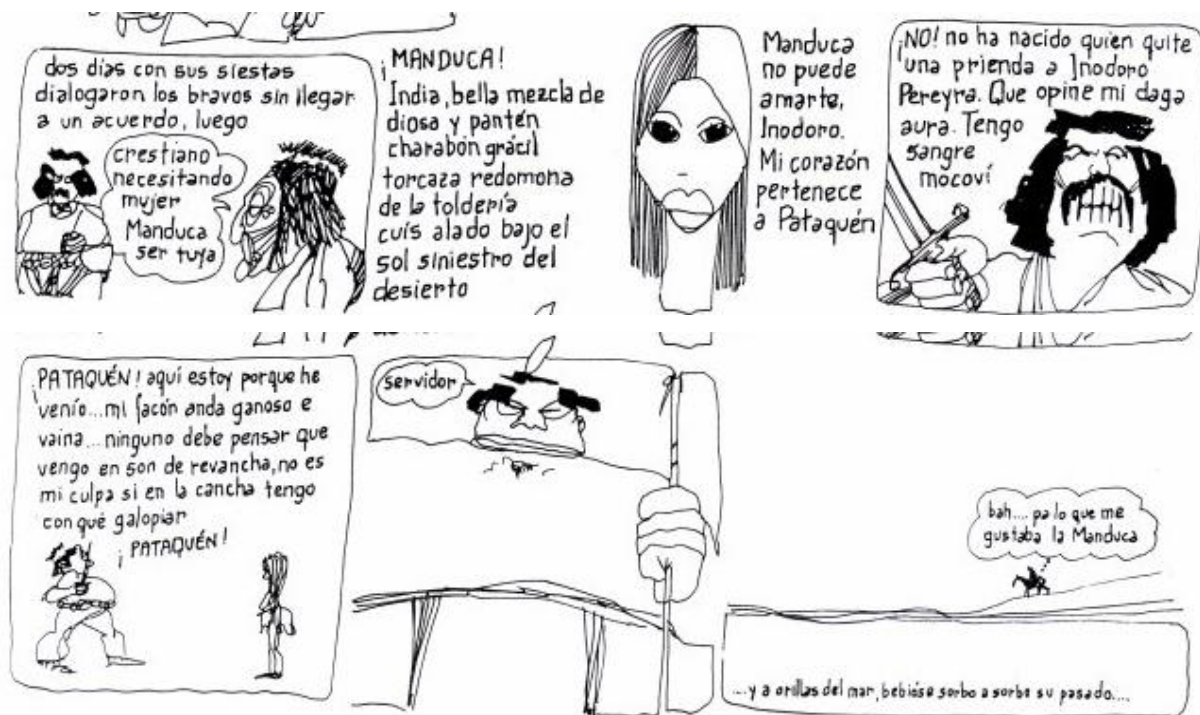 dos días con sus siestas
dialogaron los bravos sin llegar
a un acuerdo, luego
crestiano
necesitando
mujer
Manduca
ser tuya
¡MANDUCA!
India, bella mezcla de
diosa y pantén
charabón grácil
torcaza redomona
de la toldería
cuís alado bajo el
sol siniestro del
desierto
Manduca
no puede
amarte,
Inodoro.
Mi corazón
pertenece
a Pataquén
¡NO! no ha nacido quien quite
una prienda a Inodoro
Pereyra. Que opine mi daga
aura. Tengo
sangre
mocoví
¡PATAQUÉN! aquí estoy porque he
venío...mi facón anda ganoso e
vaina...ninguno debe pensar que
vengo en son de revancha, no es
mi culpa si en la cancha tengo
con qué galopiar
¡PATAQUÉN!
servidor
bah.... pa lo que me
gustaba la Manduca
....y a orillas del mar, bebióse sorbo a sorbo su pasado....